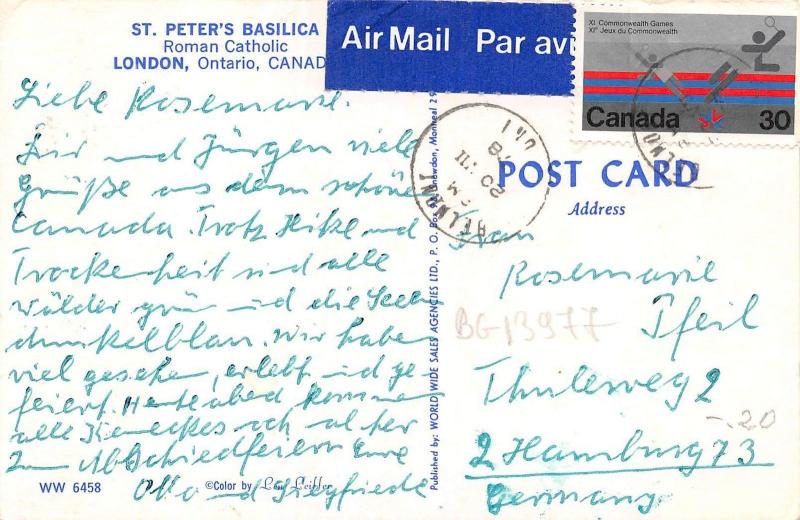 ST. PETER'S BASILICA
Roman Catholic
LONDON, Ontario, CANAD
Air Mail Par avi
XI Commonwealth Games
XIes Jeux du Commonwealth
Canada 30
Liebe Rosemarie.
Dir und Jürgen viele
Grüße aus dem schönen
Canada. Trotz Hitze und
Trockenheit sind alle
Wälder grün und die Seen
dunkelblau. Wir haben
viel gesehen, erlebt und ge
feiert. Heute abend kommen
alle
zum Abschiedfeiern Eure
Otto und Siegfriede
POST CARD
Address
Frau
Rosemarie
Pfeil
Thuleweg 2
2 Hamburg 73
Germany
BG13977
-.20
Published by: WORLD WIDE SALES AGENCIES LTD., P. O. Box Snowdon, Montreal 29
WW 6458
©Color by